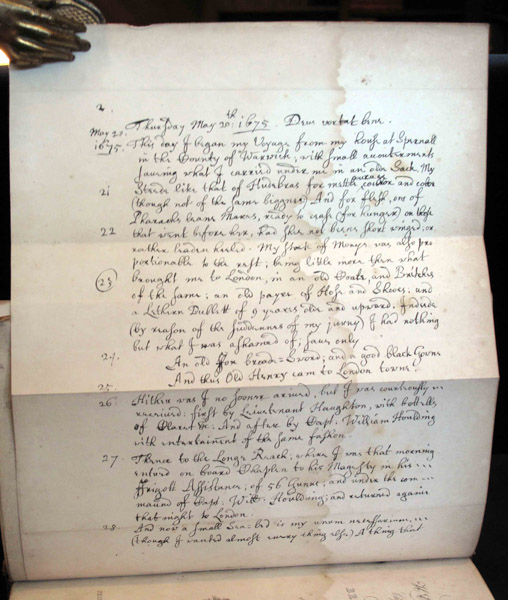 2.
Thursday May 20th. 1675. Deus vortat bene.
May 20. 1675. This day I began my Voyage from my house at Spernall
in the County of Warwick, with small accoutrements,
saving what I carried under me in an olde Sack. My
21 Steede like that of Hudibras for mettle, courage and color
(though not of the same biggnes) And for flesh, one of
Pharaohs leane Mares, ready to ceaze (for hunger) on those
22 that went before her, had shee not beene short winged, or
rather leaden heeled. My stock of Monys was also pro
portionable to the rest; being little more then what
(23) brought me to London, in an old Coate, and Britches
of the same; an old payer of Hose and Shooes; and
a Lethern Dublett of 9 yeares olde and upward. Indeede
(by reason of the suddennes of my jurny) I had nothing
but what I was ashamed of; save only
24. An old Fox broade-Sword; and a good black Gowne
25. And thus Old Henry cam to London towne.
26. Hither was I no sooner arived, but I was courteously
received: first by Lieuetenant Haughton, with bottells
of Claret &c. And after by Capt. William Houlding
with entertainement of the same fashion.
27. Thence to the Longe Reach; where I was that morning
entred on board Chaplen to his Majesty in his
Friggott Assistance, of 56 Gunns; and under the com
maund of Capt. Will: Houlding; and returned againe
that night to London.
28. And now a small Sea-bed is my unum necessarium,
(though I wanted almost every thing else.) A thing that